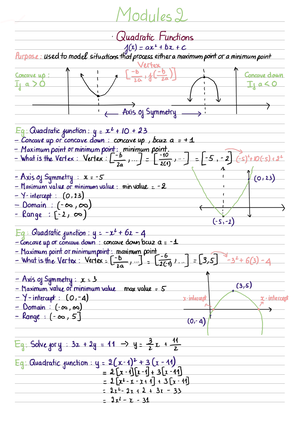 Modules 2
· Quadratic Functions
f(x) = ax² + bx + c
Purpose : used to model situations that process either a maximum point or a minimum point
Vertex
Concave up :
If a > 0
[-b/2a , f(-b/2a)]
Concave down
If a < 0
← Axis of Symmetry →
Eg : Quadratic function : y = x² + 10 + 23
- Concave up or concave down : concave up, bcuz a = +1
- Maximum point or minimum point : minimum point
- What is the Vertex : Vertex : [-b/2a , ...] = [-10/2(1) , ...] = [-5 , -2]
- Axis of Symmetry : x = -5
- Maximum value or minimum value : min value = -2
- Y-intercept : (0,23)
- Domain : (-∞,∞)
- Range : [-2, ∞)
(0,23)
(-5,-2)
Eg : Quadratic function : y = -x² + 6x - 4
- Concave up or concave down : concave down bcuz a = -1
- Maximum point or minimum point : maximum point
- What is the Vertex : Vertex = [-b/2a , ...] = [-6/2(-1) , ...] = [3,5] → -3² + 6(3) - 4
- Axis of Symmetry : x = 3
- Maximum value or minimum value max value = 5
- Y-intercept : (0,-4)
- Domain : (-∞,∞)
- Range : (-∞, 5]
(3,5)
x-intercept
x-intercept
(0,-4)
Eg : Solve for y : 3x + 2y = 11 → y = 3/2 x + 11/2
Eg : Quadratic function : y = 2(x-1)² + 3(x-11)
= 2[x-1][x-1] + 3[x-11]
= 2[x²-x-x+1] + 3[x-11]
= 2x² - 2x + 2 + 3x - 33
= 2x² - x - 31